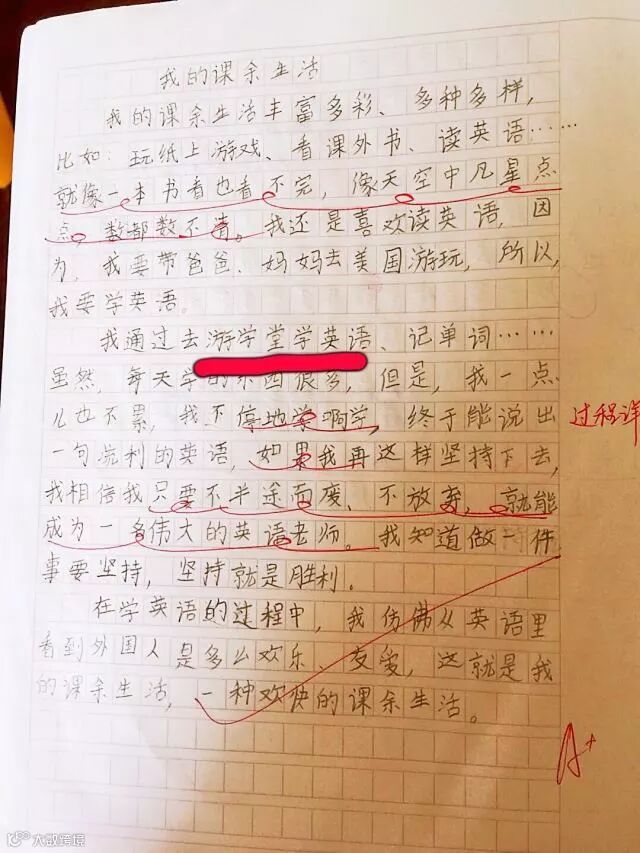 我的课余生活
我的课余生活丰富多彩、多种多样,
比如:玩纸上游戏、看课外书、读英语……
就像一本书看也看不完,像天空中凡星点
点,数都数不清。我还是喜欢读英语,因
为,我要带爸爸、妈妈去美国游玩,所以,
我要学英语。
我通过去游学堂学英语、记单词……
虽然,每天学的东西很多,但是,我一点
儿也不累,我不停地学啊学,终于能说出
过程详
一句流利的英语,如果我再这样坚持下去,
我相信我只要不半途而废、不放弃,就能
成为一名伟大的英语老师。我知道做一件
事要坚持,坚持就是胜利。
在学英语的过程中,我仿佛从英语里
看到外国人是多么欢乐、友爱,这就是我
的课余生活,一种欢快的课余生活。
A+
大数跨境